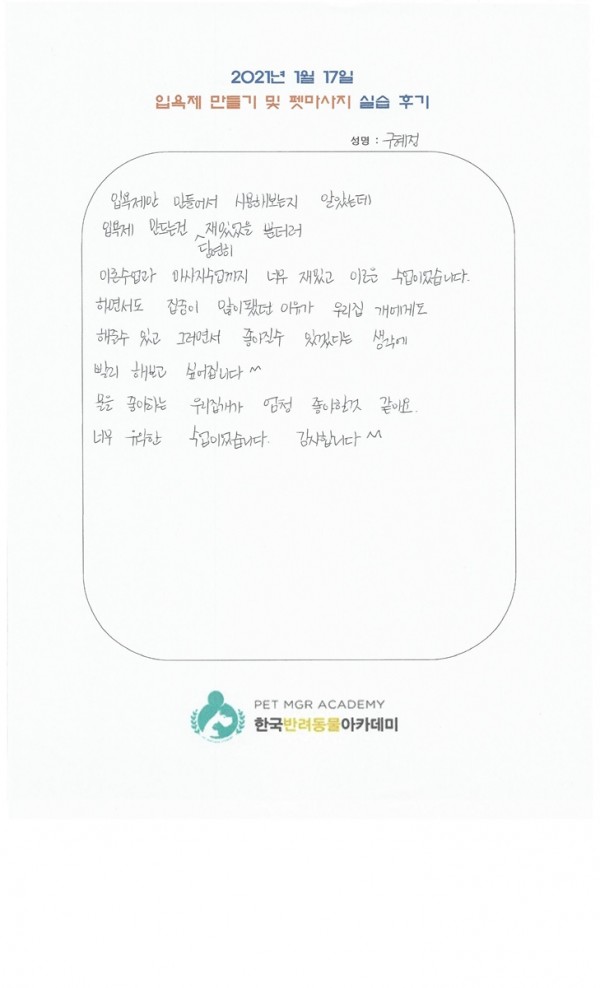 2021년 1월 17일
입욕제 만들기 및 펫마사지 실습 후기
성명 : 구혜정
입욕제만 만들어서 사용해보는지 알았는데
입욕제 만드는건 재밌었을 뿐더러
당연히
이론수업과 마사지수업까지 너무 재밌고 이로운 수업이었습니다.
하면서도 집중이 많이됐던 이유가 우리집 개에게도
해줄수 있고 그러면서 좋아질수 있겠다는 생각에
빨리 해보고 싶어집니다^^
물을 좋아하는 우리집개가 엄청 좋아할것 같아요.
너무 유익한 수업이었습니다. 감사합니다^^
PET MGR ACADEMY
한국반려동물아카데미